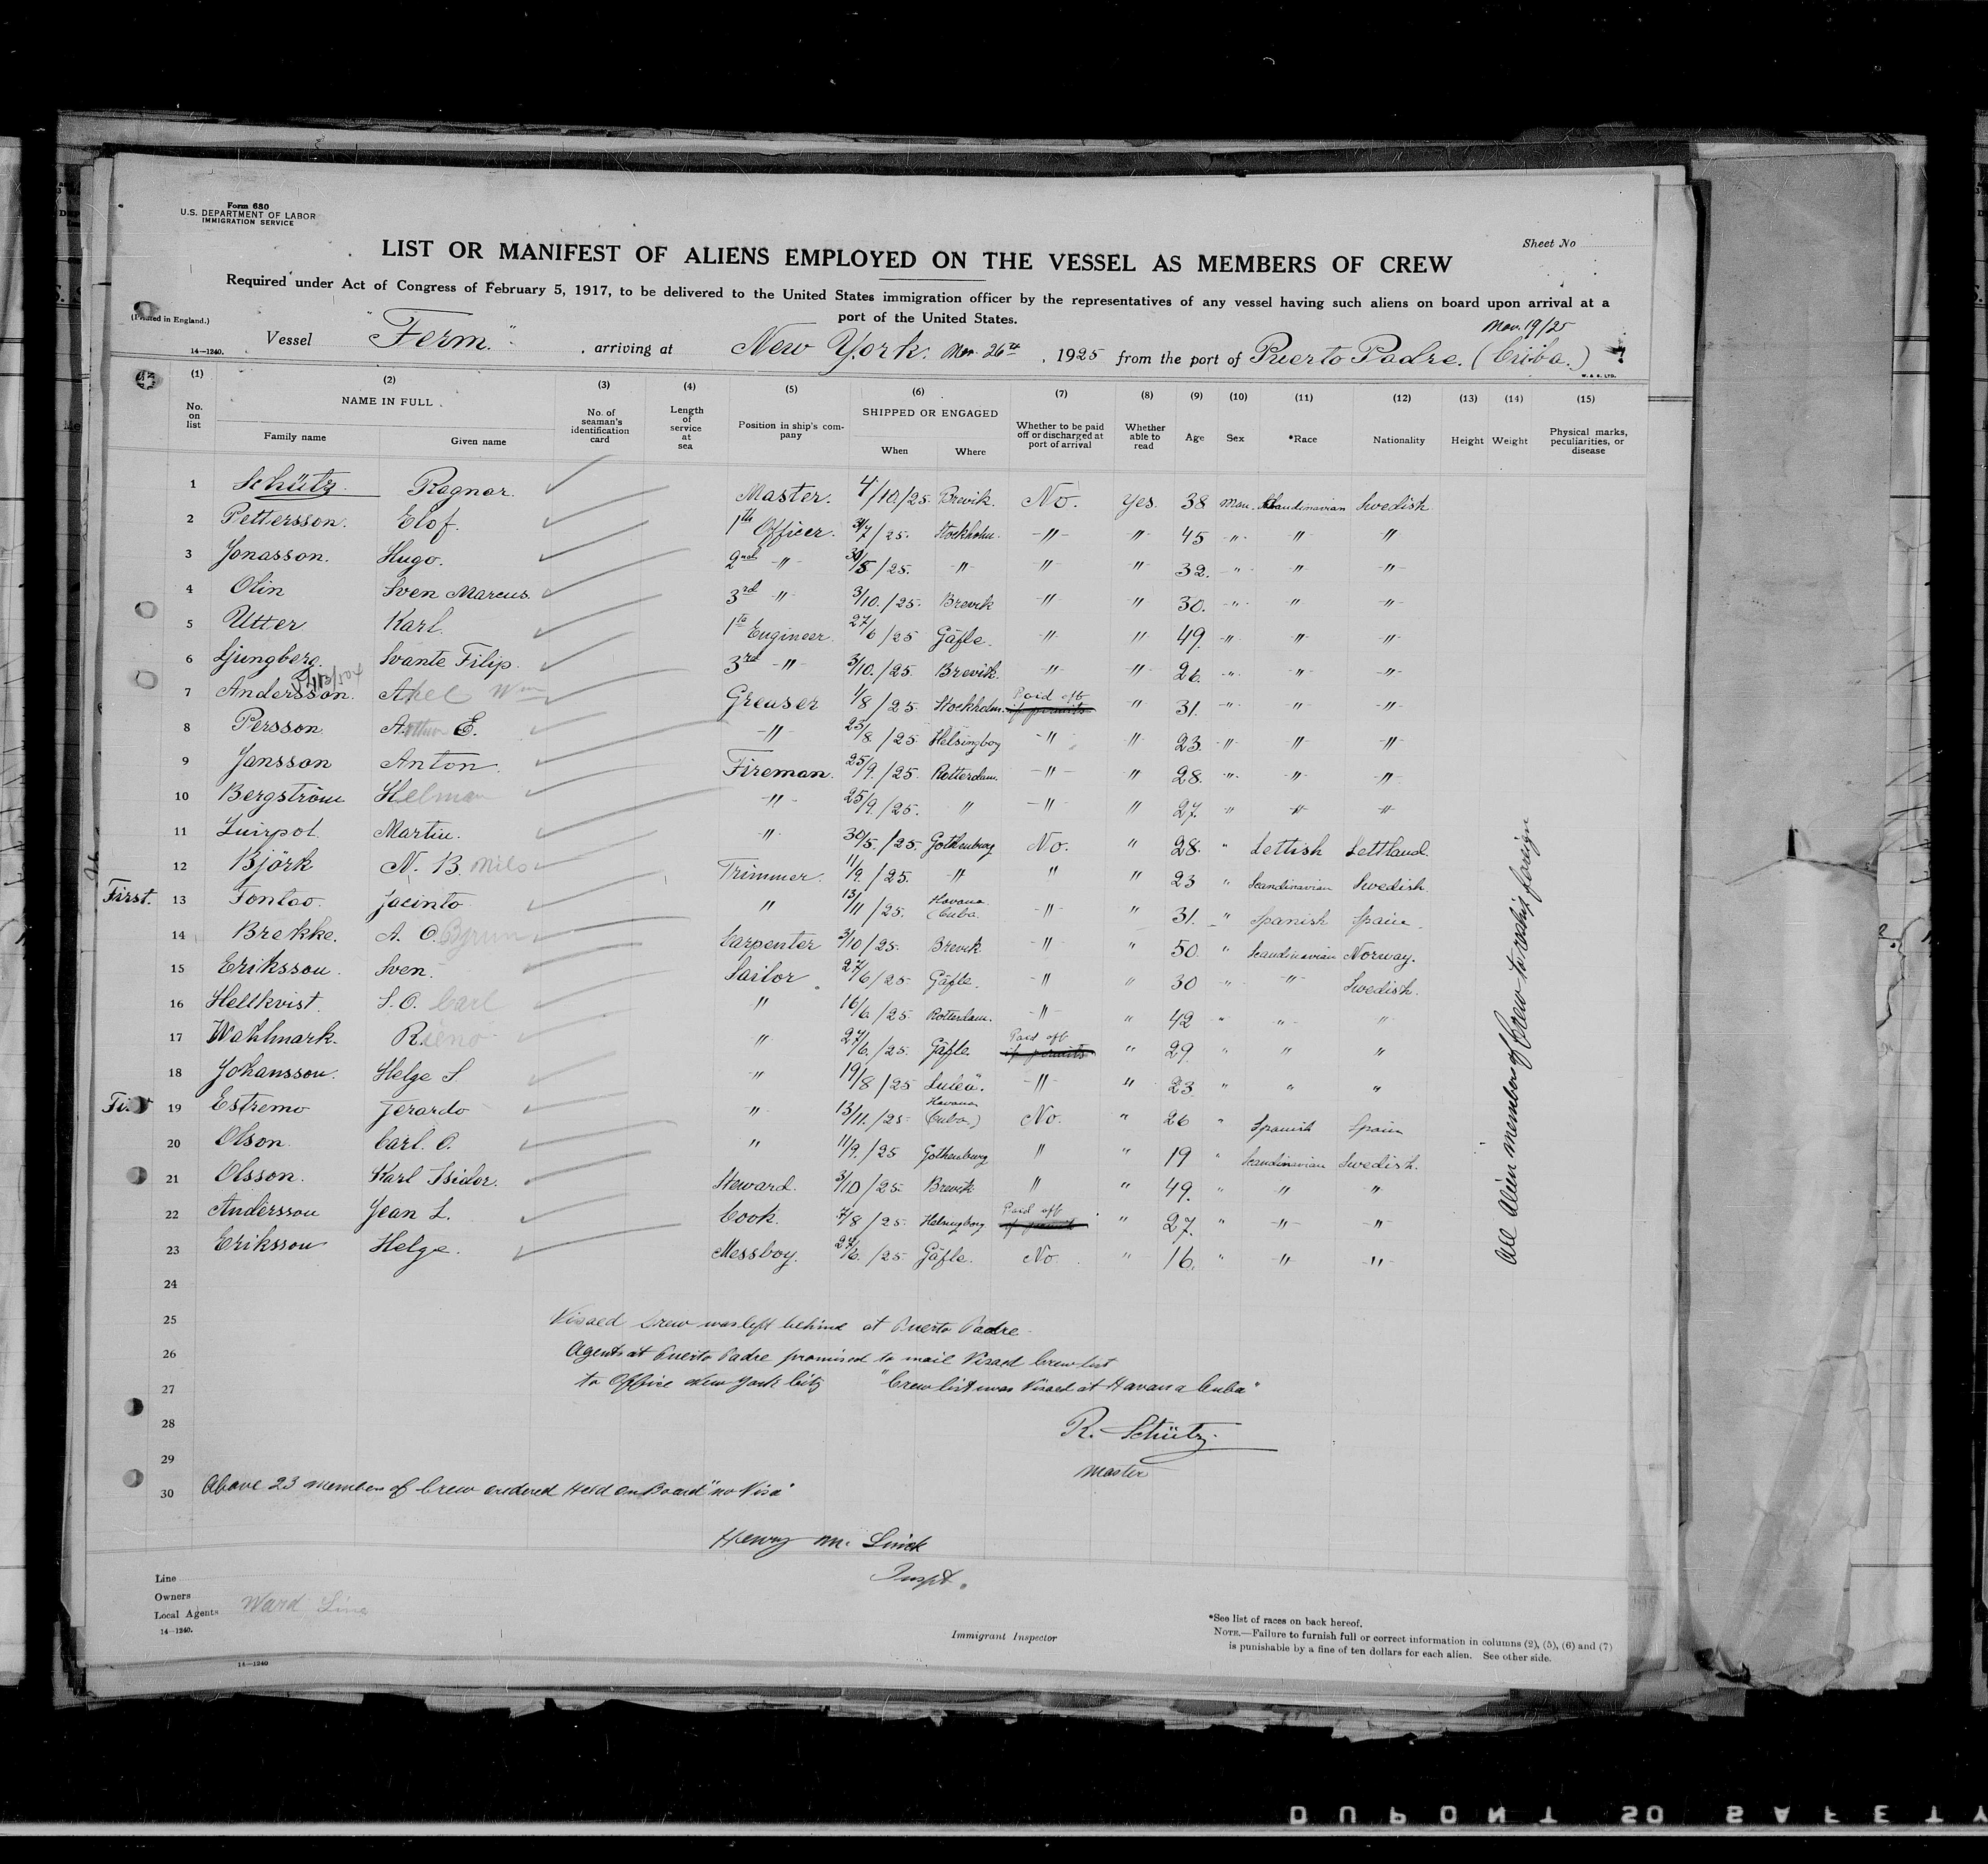 Form 680
U.S. DEPARTMENT OF LABOR
IMMIGRATION SERVICE
Sheet No
LIST OR MANIFEST OF ALIENS EMPLOYED ON THE VESSEL AS MEMBERS OF CREW
Required under Act of Congress of February 5, 1917, to be delivered to the United States immigration officer by the representatives of any vessel having such aliens on board upon arrival at a
port of the United States.
(Printed in England.)
Nov. 19/25
Vessel "Ferm." , arriving at New York. Nov. 26th , 1925 from the port of Puerto Padre. (Cuba.)
14—1240.
W. & S. LTD.
(1) (2) (3) (4) (5) (6) (7) (8) (9) (10) (11) (12) (13) (14) (15)
No. on list NAME IN FULL Family name Given name No. of seaman's identification card Length of service at sea Position in ship's company SHIPPED OR ENGAGED When Where Whether to be paid off or discharged at port of arrival Whether able to read Age Sex *Race Nationality Height Weight Physical marks, peculiarities, or disease
1 Schütz. Ragnar. Master. 4/10./25. Brevik. No. Yes. 38 Man. Scandinavian Swedish
2 Pettersson. Elof. 1th Officer. 31/7/25. Stockholm. -"- " 45 -"- -"- "
3 Jonasson. Hugo. 2nd -"- 30/5/25. -"- -"- " 32. -"- -"- -"-
4 Olin Sven Marcus. 3rd -"- 3/10./25. Brevik -"- " 30. -"- -"- -"-
5 Utter Karl. 1te Engineer. 27/6/25 Gäfle. -"- " 49. -"- -"- -"-
6 Ljungberg. Svante Filip. 3rd -"- 3/10./25. Brevik. -"- " 26. -"- -"- -"-
7 Andersson. Axel Wm Greaser 1/8/25. Stockholm. Paid off if permits " 31. -"- -"- -"-
8 Persson Arthur E. -"- 25/8./25. Helsingborg -"- " 23. -"- -"- -"-
9 Jansson Anton. Fireman. 25/9./25. Rotterdam. -"- " 28. -"- -"- -"-
10 Bergström Helman -"- 25/9./25. " -"- " 27. " -"- -"-
11 Martin. -"- 30/5./25. Gothenburg No. " 28. " Lettish Lettland.
12 Björk N. B. Nils Trimmer. 11/9./25. -"- " " 23 " Scandinavian Swedish.
First. 13 Fontao. Jacinto " 13/11/25. Havana Cuba. -"- " 31. " Spanish Spain.
14 Brekke. A. O. Carpenter 3/10/25. Brevik -"- " 50. " Scandinavian Norway.
15 Eriksson. Sven. Sailor 27/6/25 Gäfle. -"- " 30 " -"- Swedish.
16 Hellkvist. S. O. Carl " 16/6./25. Rotterdam. -"- " 42 " " "
17 Wahlmark. " 27/6./25. Gäfle. Paid off if permits " 29. " " "
18 Johansson. Helge S. " 19/8/25 Luleå. -"- " 23 " " "
First 19 Estremo Jerardo " 13/11./25. Havana (Cuba.) No. " 26 " Spanish Spain
20 Olson. Carl. O. " 11/9./25 Gothenburg " " 19 " Scandinavian Swedish.
21 Olsson. Karl Isidor. Steward. 3/10/25. Brevik " " 49. " " "
22 Andersson Jean L. Cook. 7/8/25. Helsingborg Paid off if permits " 27. " -"- -"-
23 Eriksson Helge. Messboy. 27/6./25. Gäfle. No. " 16. " -"- -"-
24
25 Visaed Crew was left behind at Puerto Padre
26 Agents at Puerto Padre promised to mail Visaed Crew list
27 to Office New York City "Crew list was Visaed at Havana Cuba"
28 R. Schütz.
29 Master
30 Above 23 members of Crew ordered Held on Board "no Visa"
Henry M. Linck
Inspt.
All Alien members of Crew to reship foreign
Line
Owners
Local Agents Ward Line
14—1240.
Immigrant Inspector
*See list of races on back hereof.
NOTE.—Failure to furnish full or correct information in columns (2), (5), (6) and (7)
is punishable by a fine of ten dollars for each alien. See other side.
14—1240
DUPONT 50 SAFETY